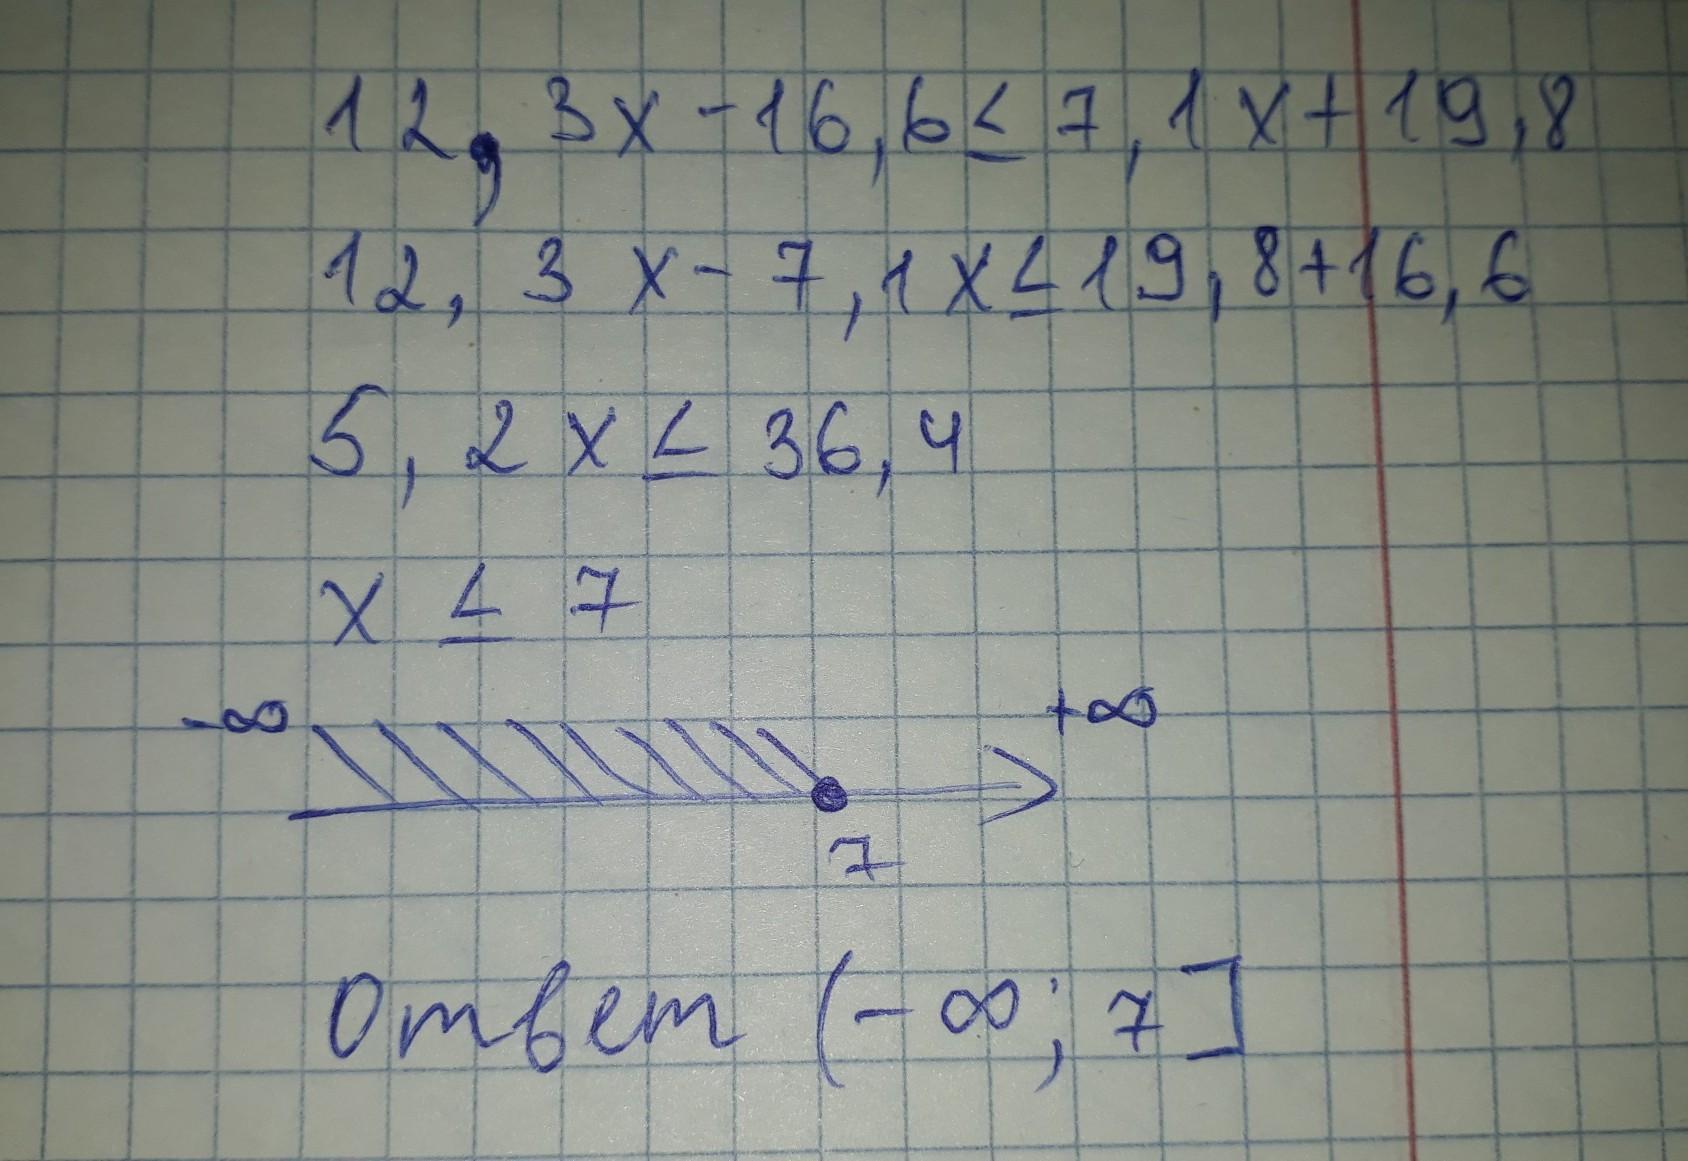 12,3x-16,6≤7,1x+19,8
12,3x-7,1x≤19,8+16,6
5,2x≤36,4
x≤7
-∞ +∞
7
Ответ (-∞; 7]